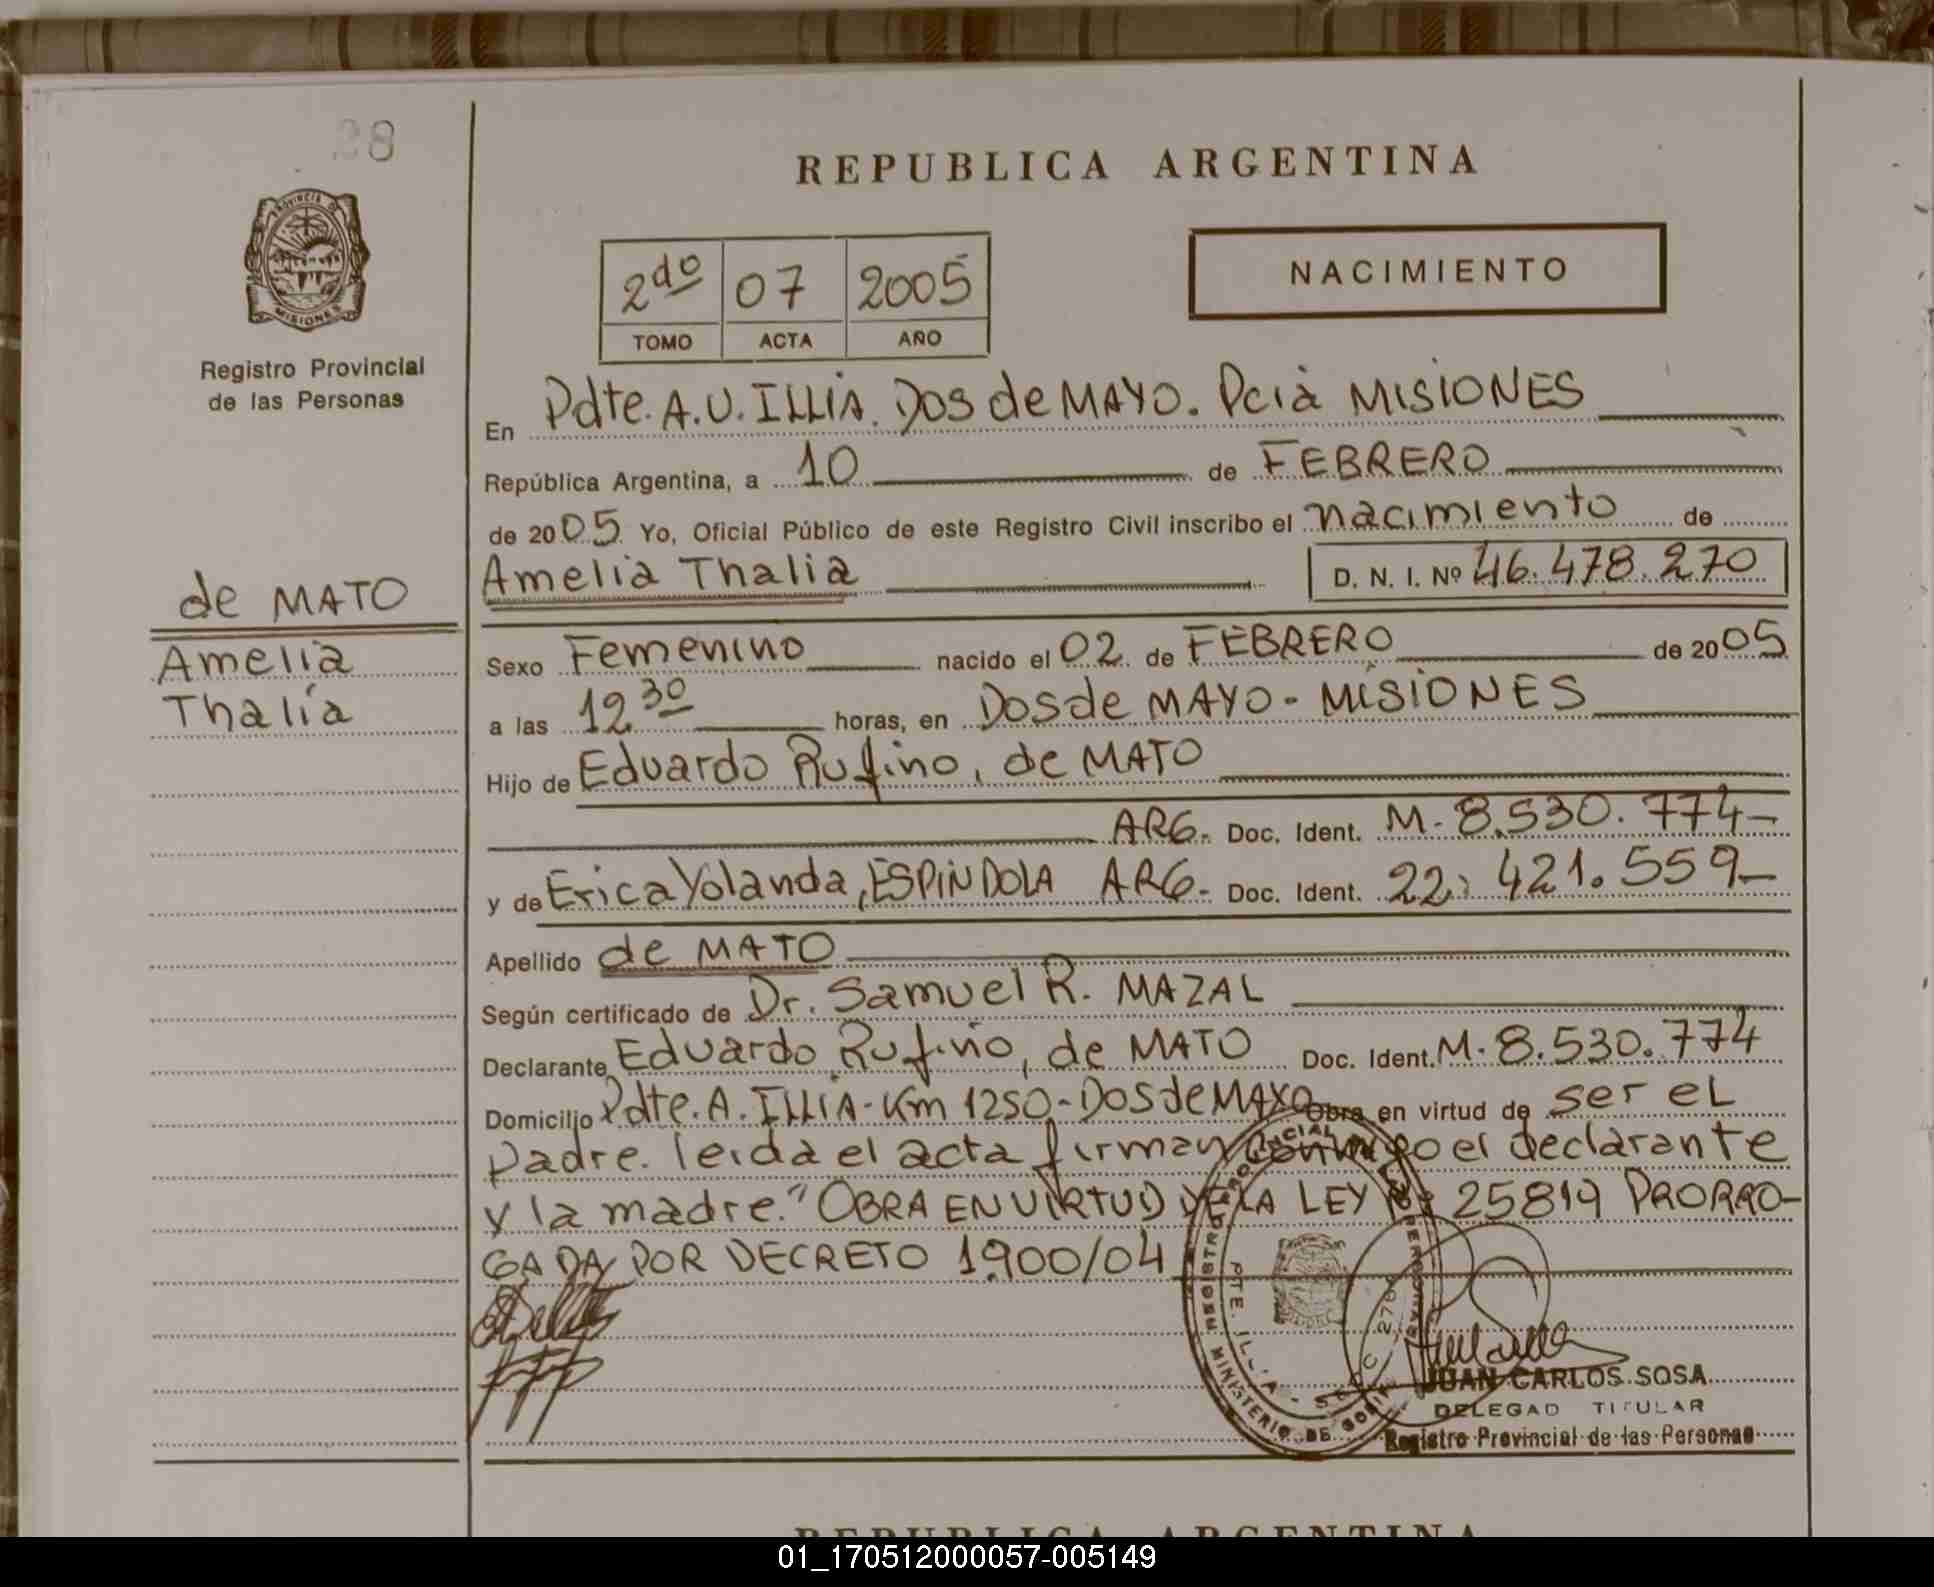 28
PROVINCIA DE
MISIONES
Registro Provincial
de las Personas
de MATO
Amelia
Thalía
REPUBLICA ARGENTINA
2do 07 2005
TOMO ACTA AÑO
NACIMIENTO
En Pdte. A. U. ILLIA. Dos de MAYO. Pcia MISIONES
República Argentina, a 10 de FEBRERO
de 2005 Yo, Oficial Público de este Registro Civil inscribo el nacimiento de
Amelia Thalia D. N. I. Nº 46.478.270
Sexo Femenino nacido el 02 de FEBRERO de 2005
a las 12 30 horas, en Dos de MAYO - MISIONES
Hijo de Eduardo Rufino, de MATO
ARG. Doc. Ident. M. 8.530.774-
y de Erica Yolanda, ESPINDOLA ARG. Doc. Ident. 22.421.559-
Apellido de MATO
Según certificado de Dr. Samuel R. MAZAL
Declarante Eduardo Rufino, de MATO Doc. Ident. M. 8.530.774
Domicilio Pdte. A. ILLIA - Km 1250 - Dos de MAYO Obra en virtud de ser el
padre. leida el acta firman conmigo el declarante
y la madre. "OBRA EN VIRTUD DE LA LEY Nº 25819 PRORRO-
GADA POR DECRETO 1900/04
REGISTRO PROVINCIAL DE LAS PERSONAS
MINISTERIO DE GOBIERNO
PTE. ILLIA - SECC 270
JUAN CARLOS SOSA
DELEGAD TITULAR
Registro Provincial de las Personas
REPUBLICA ARGENTINA
01_170512000057-005149